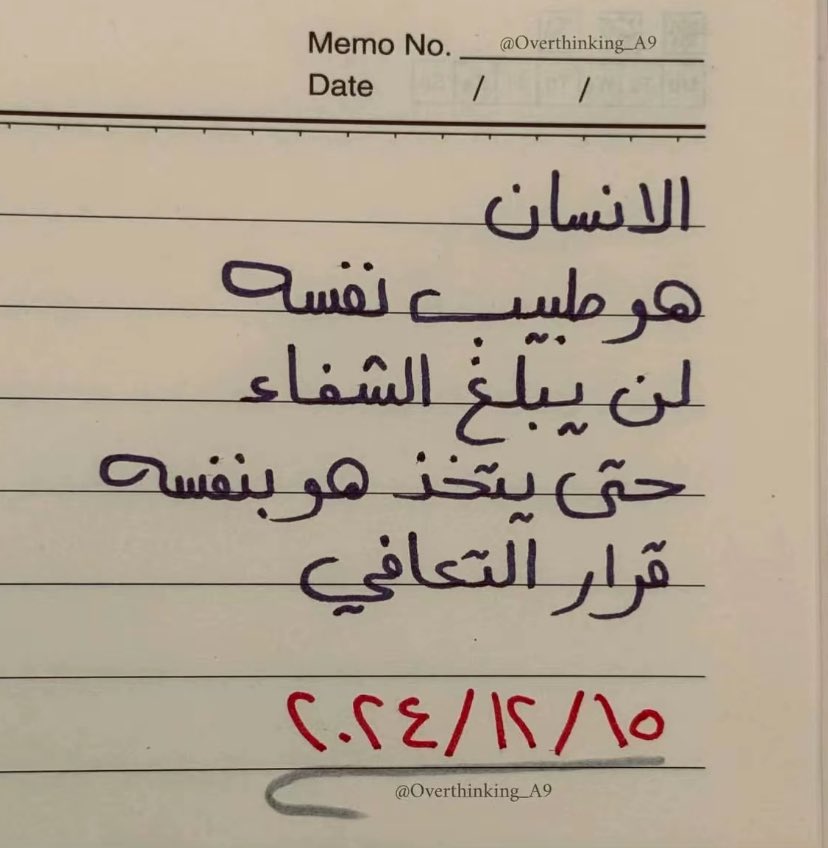 Memo No. @Overthinking_A9
Date / /
الانسان
هو طبيب نفسه
لن يبلغ الشفاء
حتى يتخذ هو بنفسه
قرار التعافي
٢٠٢٤/١٢/١٥
@Overthinking_A9